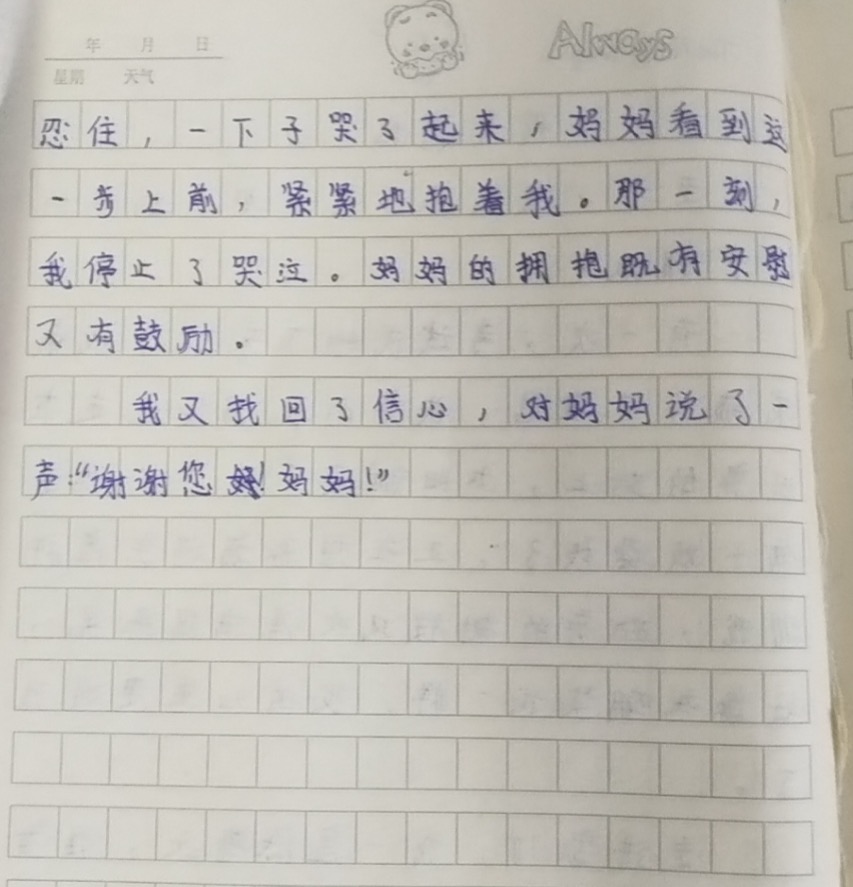 年 月 日
Always
星期 天气
忍住，一下子哭了起来，妈妈看到这
一步上前，紧紧地抱着我。那一刻，
我停止了哭泣。妈妈的拥抱既有安慰
又有鼓励。
我又找回了信心，对妈妈说了一
声：“谢谢您！妈妈！”